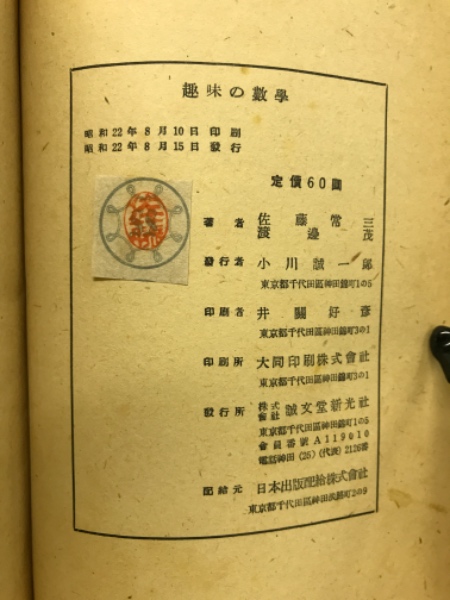 趣味の數學
昭和22年8月10日 印刷
昭和22年8月15日 發行
定價60圓
著者 佐藤常三
渡邊茂
發行者 小川誠一郎
東京都千代田區神田錦町1の5
印刷者 井關好彦
東京都千代田區神田錦町3の1
印刷所 大同印刷株式會社
東京都千代田區神田錦町3の1
發行所 株式會社 誠文堂新光社
東京都千代田區神田錦町1の5
會員番號 A119010
電話神田 (25) (代表) 2126番
配給元 日本出版配給株式會社
東京都千代田區神田淡路町2の9